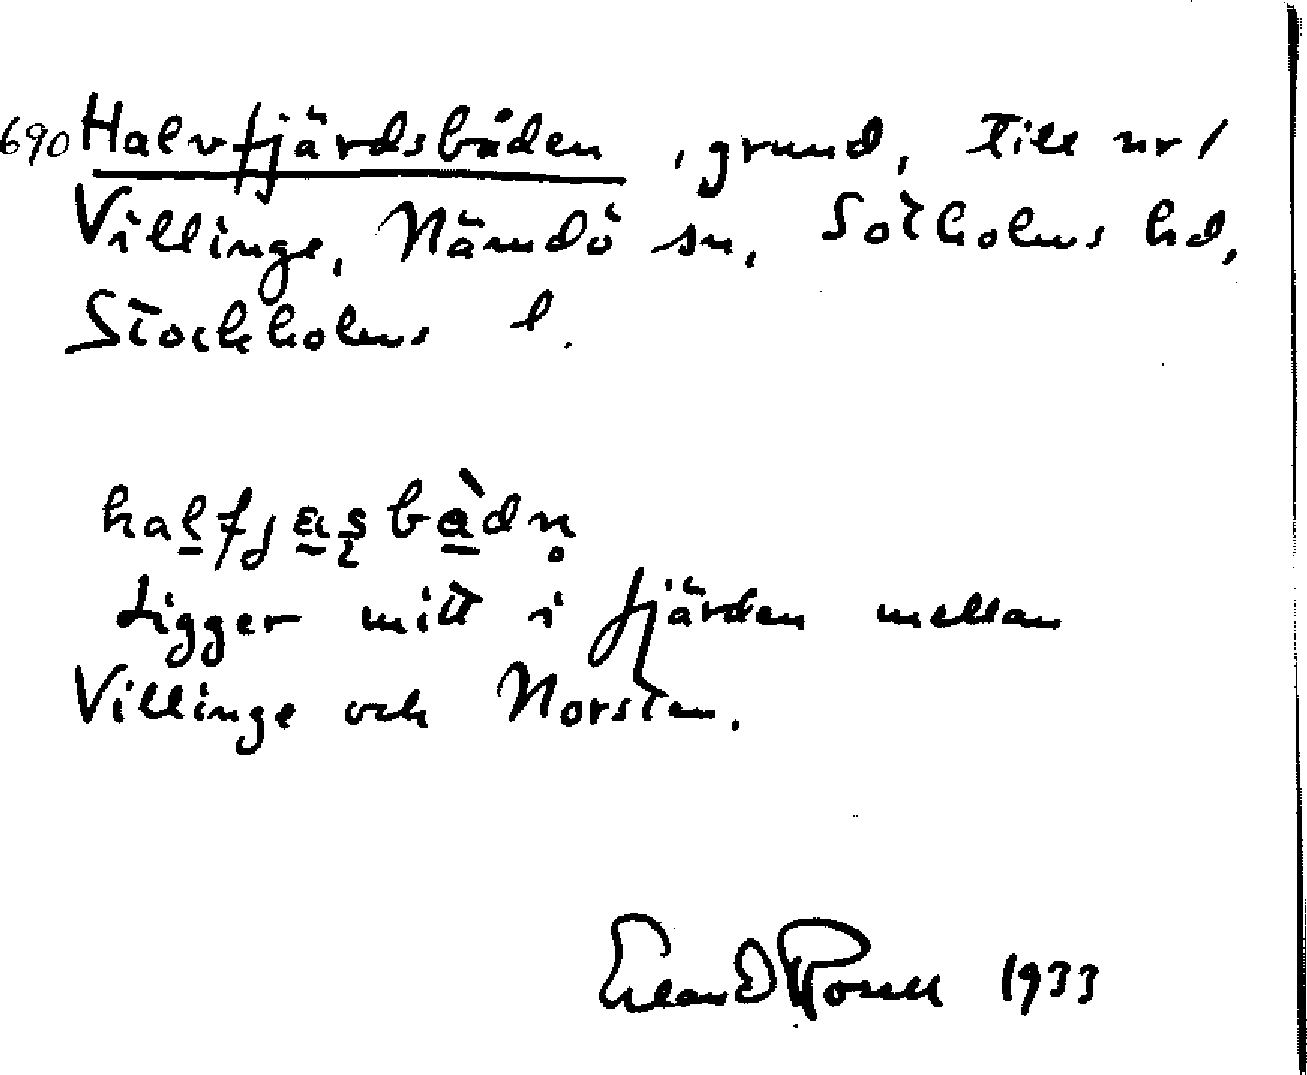 690 Halvfjärdsbåden, grund, till nr 1
Villinge, Nämdö sn, Sotholms hd,
Stockholms l.
Ligger mitt i fjärden mellan
Villinge och Norsten.
1933